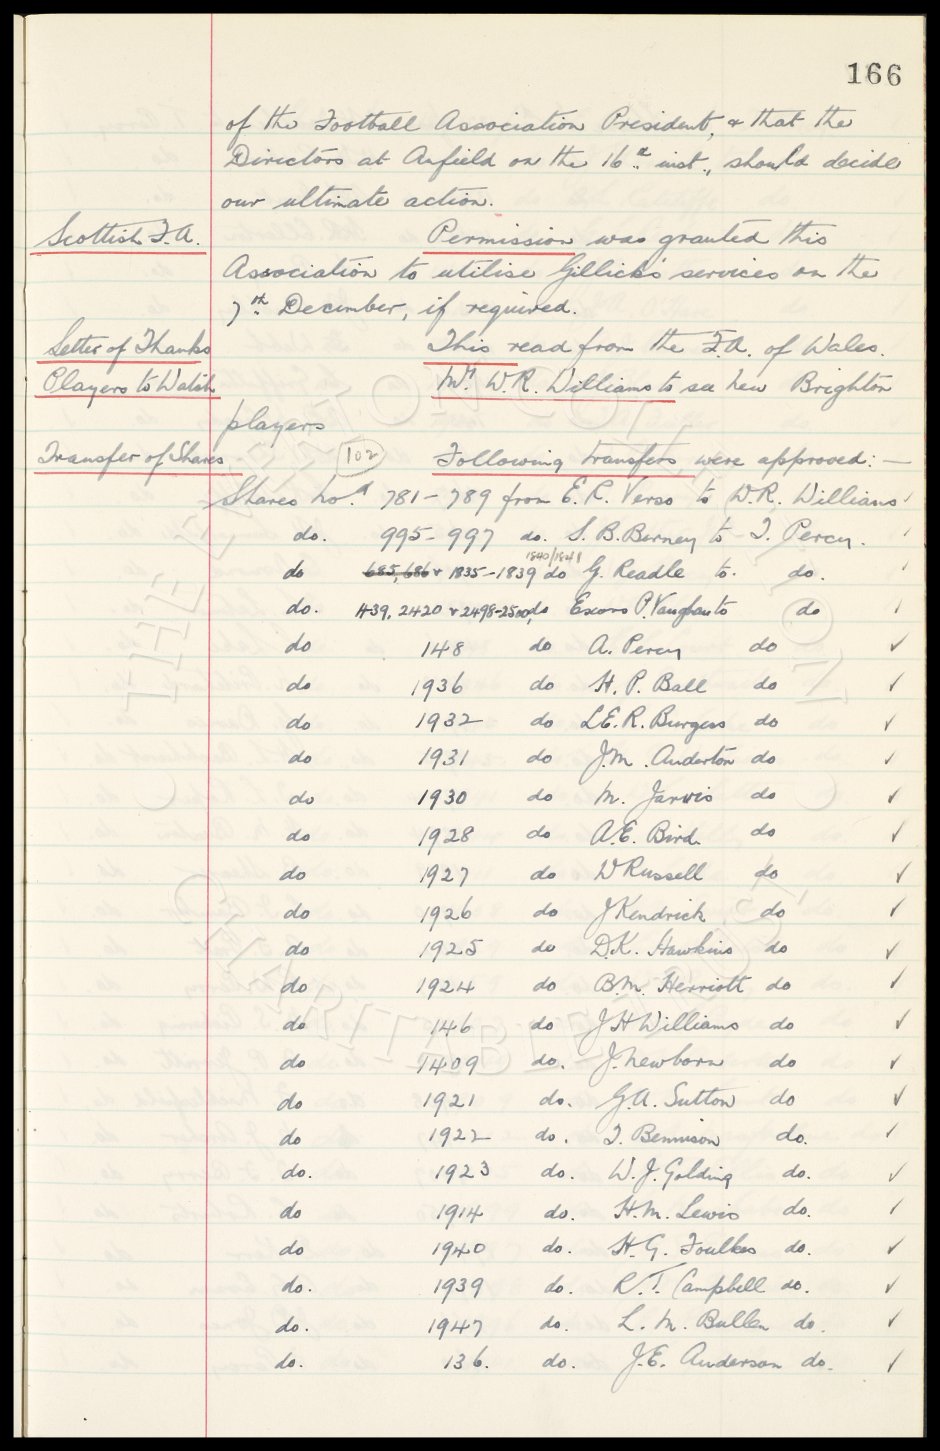 166
of the Football Association President, & that the
Directors at Anfield on the 16th inst., should decide
our ultimate action.
Scottish F.A. Permission was granted this
Association to utilise Gillick's services on the
7th December, if required.
Letter of Thanks This read from the F.A. of Wales.
Players to Watch Mr. W.R. Williams to see New Brighton
players
Transfer of Shares 102 Following transfers were approved:—
Shares No's 781-789 from E.R. Verso to W.R. Williams
do. 995-997 do. S.B. Berney to T. Percy.
1840/1841
do 685, 686 & 1835-1839 do G. Readle to. do.
do. 439, 2420 & 2498-2500, do Exors P. Vaughan to do
do 148 do A. Percy do
do 1936 do H.P. Ball do
do 1932 do L.E.R. Burgess do
do 1931 do J.M. Anderton do
do 1930 do M. Jarvis do
do 1928 do A.E. Bird do
do 1927 do W Russell do
do 1926 do J Kendrick do
do 1925 do D.K. Hawkins do
do 1924 do B.M. Herriott do
do 146 do J H Williams do
do 1409 do. J. Newborn do
do 1921 do. G.A. Sutton do
do 1922 do. T. Bennison do.
do. 1923 do. W.J. Golding do.
do 1914 do. H.M. Lewis do.
do 1940 do. H.G. Foulkes do.
do. 1939 do. R.T. Campbell do.
do. 1947 do. L.M. Bullen do.
do. 136. do. J.E. Anderson do.
THE EVERTON COLLECTION
CHARITABLE TRUST